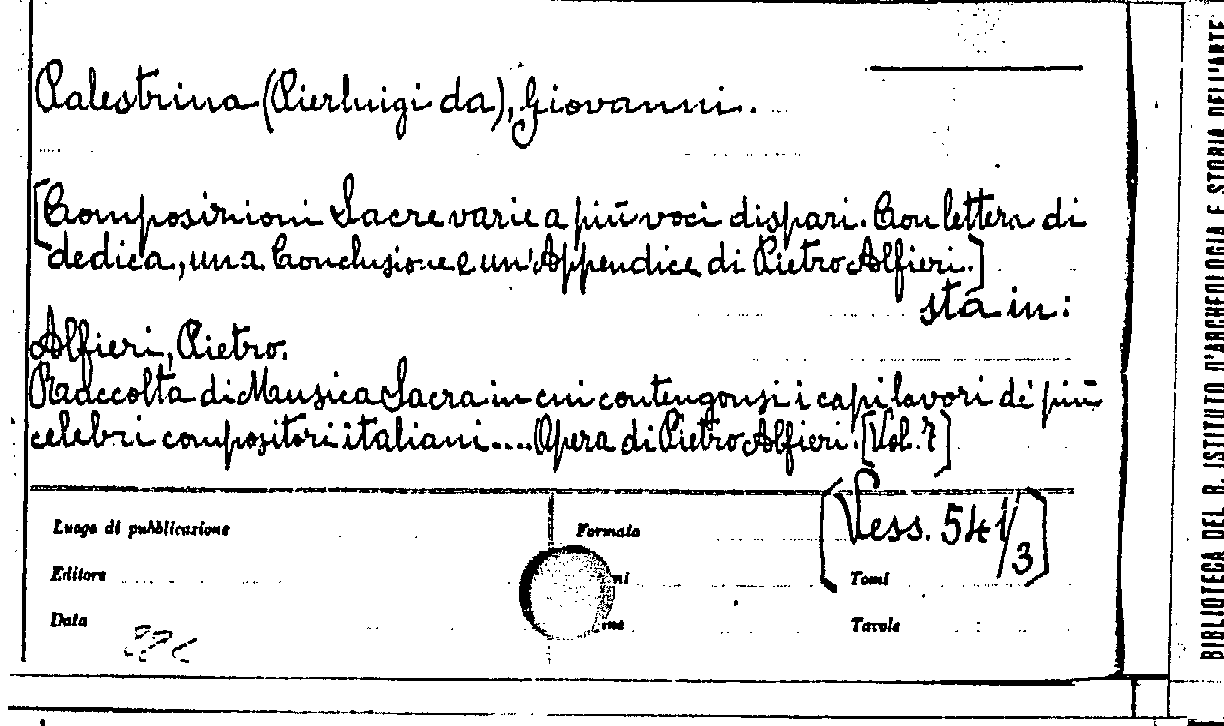 Palestrina (Pierluigi da), Giovanni.
[Composizioni Sacre varie a più voci dispari. Con lettera di
dedica, una Conclusione e un'Appendice di Pietro Alfieri.]
sta in:
Alfieri, Pietro.
Raccolta di Musica Sacra in cui contengonsi i capi lavori de' più
celebri compositori italiani.... Opera di Pietro Alfieri. [Vol. 7]
[Vess. 541/3]
Luogo di pubblicazione Formato
Editore ni Tomi
Data me Tavole
BIBLIOTECA DEL R. ISTITUTO D'ARCHEOLOGIA E STORIA DELL'ARTE